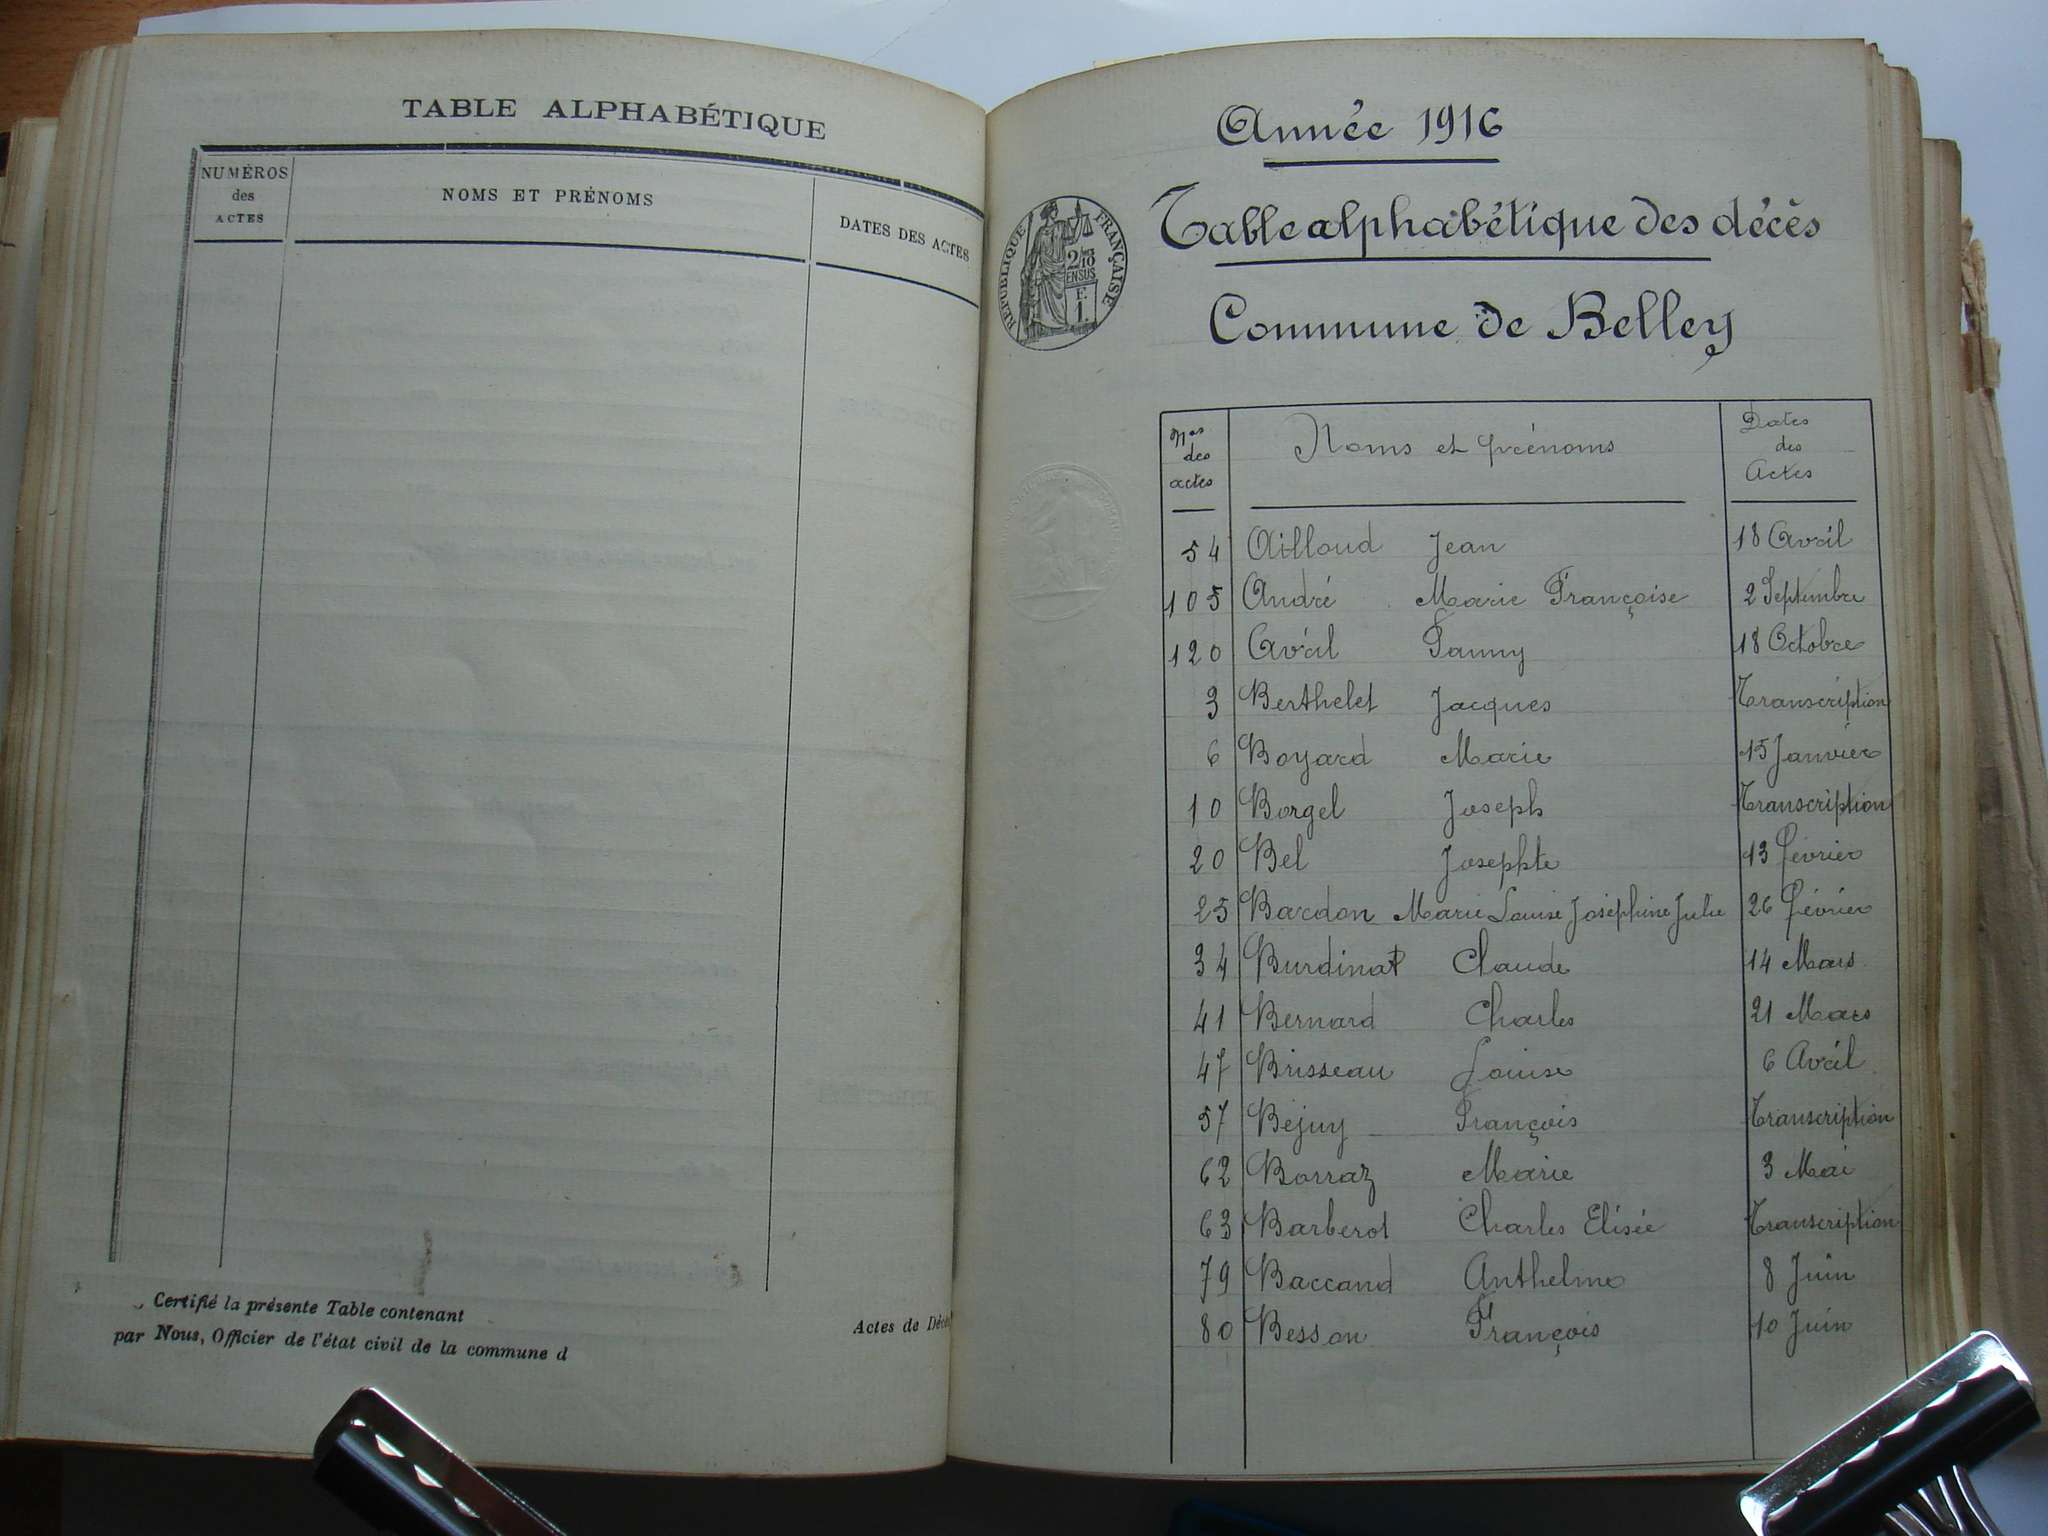 TABLE ALPHABÉTIQUE
NUMÉROS des ACTES
NOMS ET PRÉNOMS
DATES DES ACTES
Certifié la présente Table contenant Actes de Décè
par Nous, Officier de l'état civil de la commune d
Année 1916
Table alphabétique des décès
Commune de Belley
RÉPUBLIQUE FRANÇAISE
2/10 EN SUS
F. 1.
Nos des actes
Noms et prénoms
Dates des Actes
54 Ailloud Jean 18 Avril
105 André Marie Françoise 2 Septembre
120 Avril Fanny 18 Octobre
3 Berthelet Jacques Transcription
6 Boyard Marie 15 Janvier
10 Borgel Joseph Transcription
20 Bel Josephte 13 février
25 Bardon Marie Louise Joséphine Julie 26 février
34 Burdinat Claude 14 Mars
41 Bernard Charles 21 Mars
47 Brisseau Louise 6 Avril
57 Béjuy François Transcription
62 Borraz Marie 3 Mai
63 Barberot Charles Elisée Transcription
79 Baccand Anthelme 8 Juin
80 Besson François 10 Juin